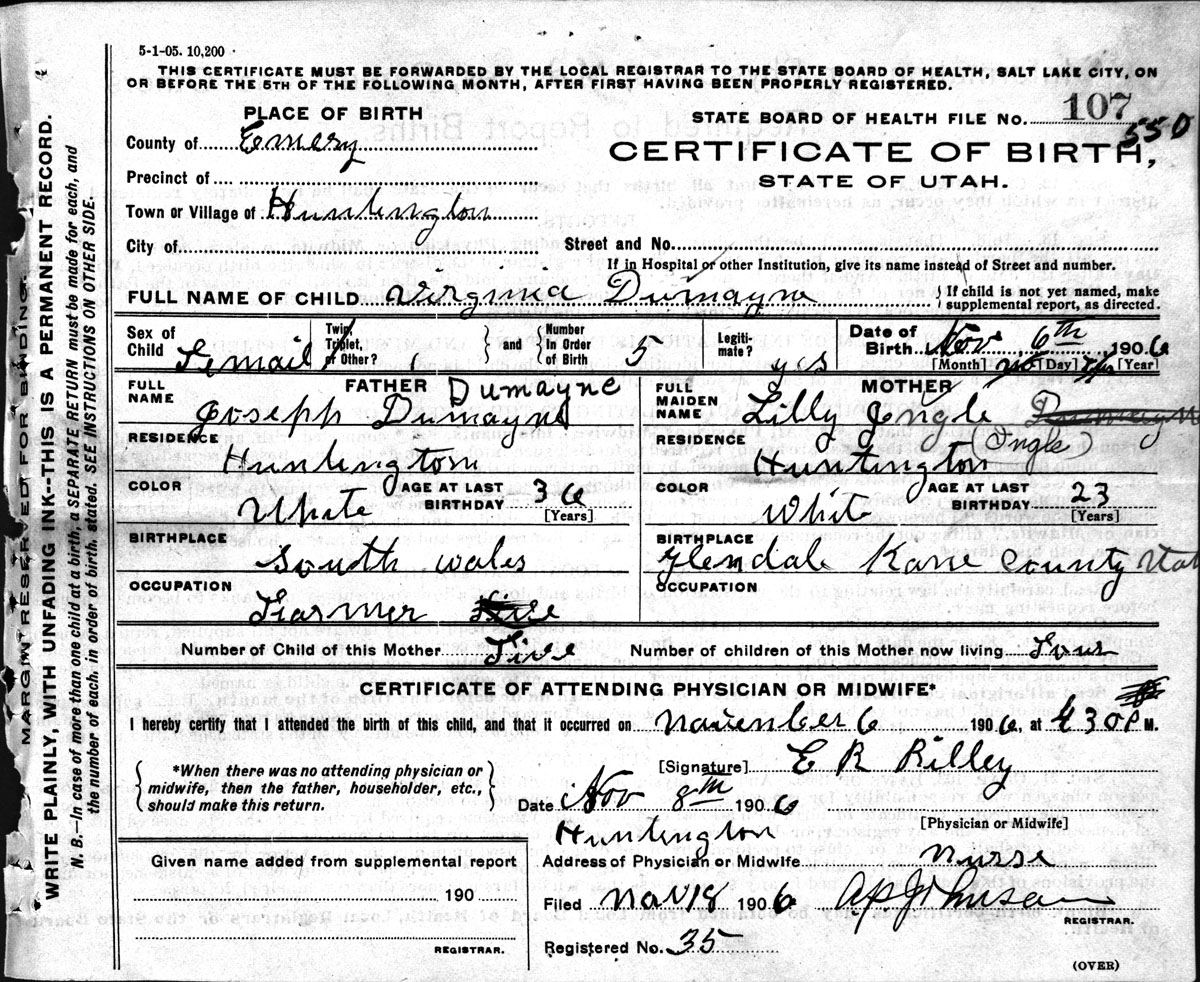 5-1-05. 10,200
THIS CERTIFICATE MUST BE FORWARDED BY THE LOCAL REGISTRAR TO THE STATE BOARD OF HEALTH, SALT LAKE CITY, ON
OR BEFORE THE 5TH OF THE FOLLOWING MONTH, AFTER FIRST HAVING BEEN PROPERLY REGISTERED.
MARGIN RESERVED FOR BINDING.
WRITE PLAINLY, WITH UNFADING INK--THIS IS A PERMANENT RECORD.
N. B.--In case of more than one child at a birth, a SEPARATE RETURN must be made for each, and
the number of each, in order of birth, stated. SEE INSTRUCTIONS ON OTHER SIDE.
PLACE OF BIRTH
County of Emery
Precinct of
Town or Village of Huntington
City of
STATE BOARD OF HEALTH FILE No. 107
550
CERTIFICATE OF BIRTH,
STATE OF UTAH.
Street and No.
If in Hospital or other Institution, give its name instead of Street and number.
FULL NAME OF CHILD Virginia Dumayne
If child is not yet named, make
supplemental report, as directed.
Sex of
Child Femail
Twin,
Triplet,
or Other?
and
Number
In Order
of Birth 5
Legiti-
mate? yes
Date of
Birth Nov 6th 1906
[Month] [Day] [Year]
FATHER
FULL
NAME
Dumayne
Joseph Dumayne
RESIDENCE
Huntington
COLOR White
AGE AT LAST
BIRTHDAY 36
[Years]
BIRTHPLACE
South wales
OCCUPATION
Farmer
MOTHER
FULL
MAIDEN
NAME Lilly Engle
RESIDENCE (Ingle)
Huntington
COLOR White
AGE AT LAST
BIRTHDAY 23
[Years]
BIRTHPLACE
Glendale Kane County Utah
OCCUPATION
Number of Child of this Mother Five
Number of children of this Mother now living Four
CERTIFICATE OF ATTENDING PHYSICIAN OR MIDWIFE*
I hereby certify that I attended the birth of this child, and that it occurred on November 6 1906, at 430 P M.
*When there was no attending physician or
midwife, then the father, householder, etc.,
should make this return.
[Signature] E R Rilley
Date Nov 8th 1906
[Physician or Midwife]
Huntington
Address of Physician or Midwife Nurse
Given name added from supplemental report
190
REGISTRAR.
Filed Nov 8 1906
REGISTRAR.
Registered No. 35
(OVER)